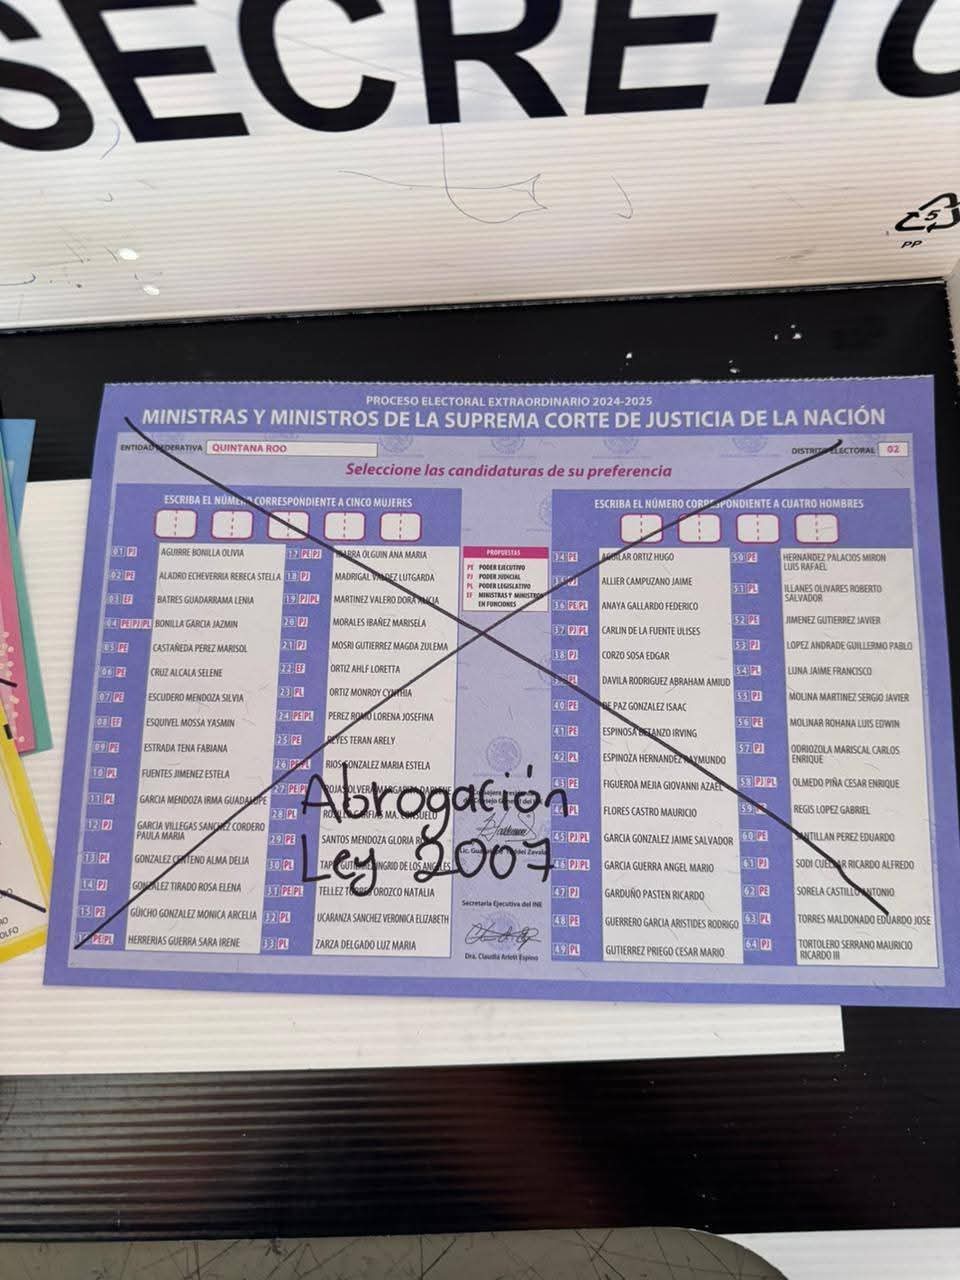 SECRETO
5
PP
PROCESO ELECTORAL EXTRAORDINARIO 2024-2025
MINISTRAS Y MINISTROS DE LA SUPREMA CORTE DE JUSTICIA DE LA NACIÓN
ENTIDAD FEDERATIVA QUINTANA ROO
DISTRITO ELECTORAL 02
Seleccione las candidaturas de su preferencia
ESCRIBA EL NÚMERO CORRESPONDIENTE A CINCO MUJERES
01 PJ AGUIRRE BONILLA OLIVIA
02 PE ALADRO ECHEVERRIA REBECA STELLA
03 EF BATRES GUADARRAMA LENIA
04 PE PJ PL BONILLA GARCIA JAZMIN
05 PE CASTAÑEDA PEREZ MARISOL
06 PE CRUZ ALCALA SELENE
07 PE ESCUDERO MENDOZA SILVIA
08 EF ESQUIVEL MOSSA YASMIN
09 PE ESTRADA TENA FABIANA
10 PL FUENTES JIMENEZ ESTELA
11 PL GARCIA MENDOZA IRMA GUADALUPE
12 PJ GARCIA VILLEGAS SANCHEZ CORDERO
PAULA MARIA
13 PL GONZALEZ CENTENO ALMA DELIA
14 PJ GONZALEZ TIRADO ROSA ELENA
15 PE GÜICHO GONZALEZ MONICA ARCELIA
PE PL HERRERIAS GUERRA SARA IRENE
17 PE PJ IBARRA OLGUIN ANA MARIA
18 PJ MADRIGAL VALDEZ LUTGARDA
19 PJ PL MARTINEZ VALERO DORA ALICIA
20 PJ MORALES IBAÑEZ MARISELA
21 PJ MOSRI GUTIERREZ MAGDA ZULEMA
22 EF ORTIZ AHLF LORETTA
23 PL ORTIZ MONROY CYNTHIA
24 PE PL PEREZ ROMO LORENA JOSEFINA
25 PE REYES TERAN ARELY
26 PE PL RIOS GONZALEZ MARIA ESTELA
27 PE PL ROJAS OLVERA MARGARITA DARLENE
28 PL ROSILLO GARFIAS MA. CONSUELO
29 PE SANTOS MENDOZA GLORIA
30 PL TAPIA GUTIERREZ INGRID DE LOS ANGELES
31 PE PL TELLEZ TORRES OROZCO NATALIA
32 PL UCARANZA SANCHEZ VERONICA ELIZABETH
33 PL ZARZA DELGADO LUZ MARIA
PROPUESTAS
PE PODER EJECUTIVO
PJ PODER JUDICIAL
PL PODER LEGISLATIVO
EF MINISTRAS Y MINISTROS
EN FUNCIONES
Secretaria Ejecutiva del INE
Dra. Claudia Arlett Espino
ESCRIBA EL NÚMERO CORRESPONDIENTE A CUATRO HOMBRES
34 PE AGUILAR ORTIZ HUGO
PJ ALLIER CAMPUZANO JAIME
36 PE PL ANAYA GALLARDO FEDERICO
37 PJ PL CARLIN DE LA FUENTE ULISES
38 PJ CORZO SOSA EDGAR
PL DAVILA RODRIGUEZ ABRAHAM AMIUD
40 PE DE PAZ GONZALEZ ISAAC
41 PE ESPINOSA BETANZO IRVING
42 PL ESPINOZA HERNANDEZ RAYMUNDO
43 PE FIGUEROA MEJIA GIOVANNI AZAEL
44 PL FLORES CASTRO MAURICIO
45 PJ PL GARCIA GONZALEZ JAIME SALVADOR
46 PJ PL GARCIA GUERRA ANGEL MARIO
47 PJ GARDUÑO PASTEN RICARDO
48 PE GUERRERO GARCIA ARISTIDES RODRIGO
49 PL GUTIERREZ PRIEGO CESAR MARIO
50 PE HERNANDEZ PALACIOS MIRON
LUIS RAFAEL
51 PL ILLANES OLIVARES ROBERTO
SALVADOR
52 PE JIMENEZ GUTIERREZ JAVIER
53 PJ LOPEZ ANDRADE GUILLERMO PABLO
54 PL LUNA JAIME FRANCISCO
55 PJ MOLINA MARTINEZ SERGIO JAVIER
56 PE MOLINAR ROHANA LUIS EDWIN
57 PJ ODRIOZOLA MARISCAL CARLOS
ENRIQUE
58 PJ PL OLMEDO PIÑA CESAR ENRIQUE
59 REGIS LOPEZ GABRIEL
60 PE SANTILLAN PEREZ EDUARDO
61 PJ SODI CUELLAR RICARDO ALFREDO
62 PE SORELA CASTILLO ANTONIO
63 PL TORRES MALDONADO EDUARDO JOSE
64 PJ TORTOLERO SERRANO MAURICIO
RICARDO III
Abrogación
Ley 2007